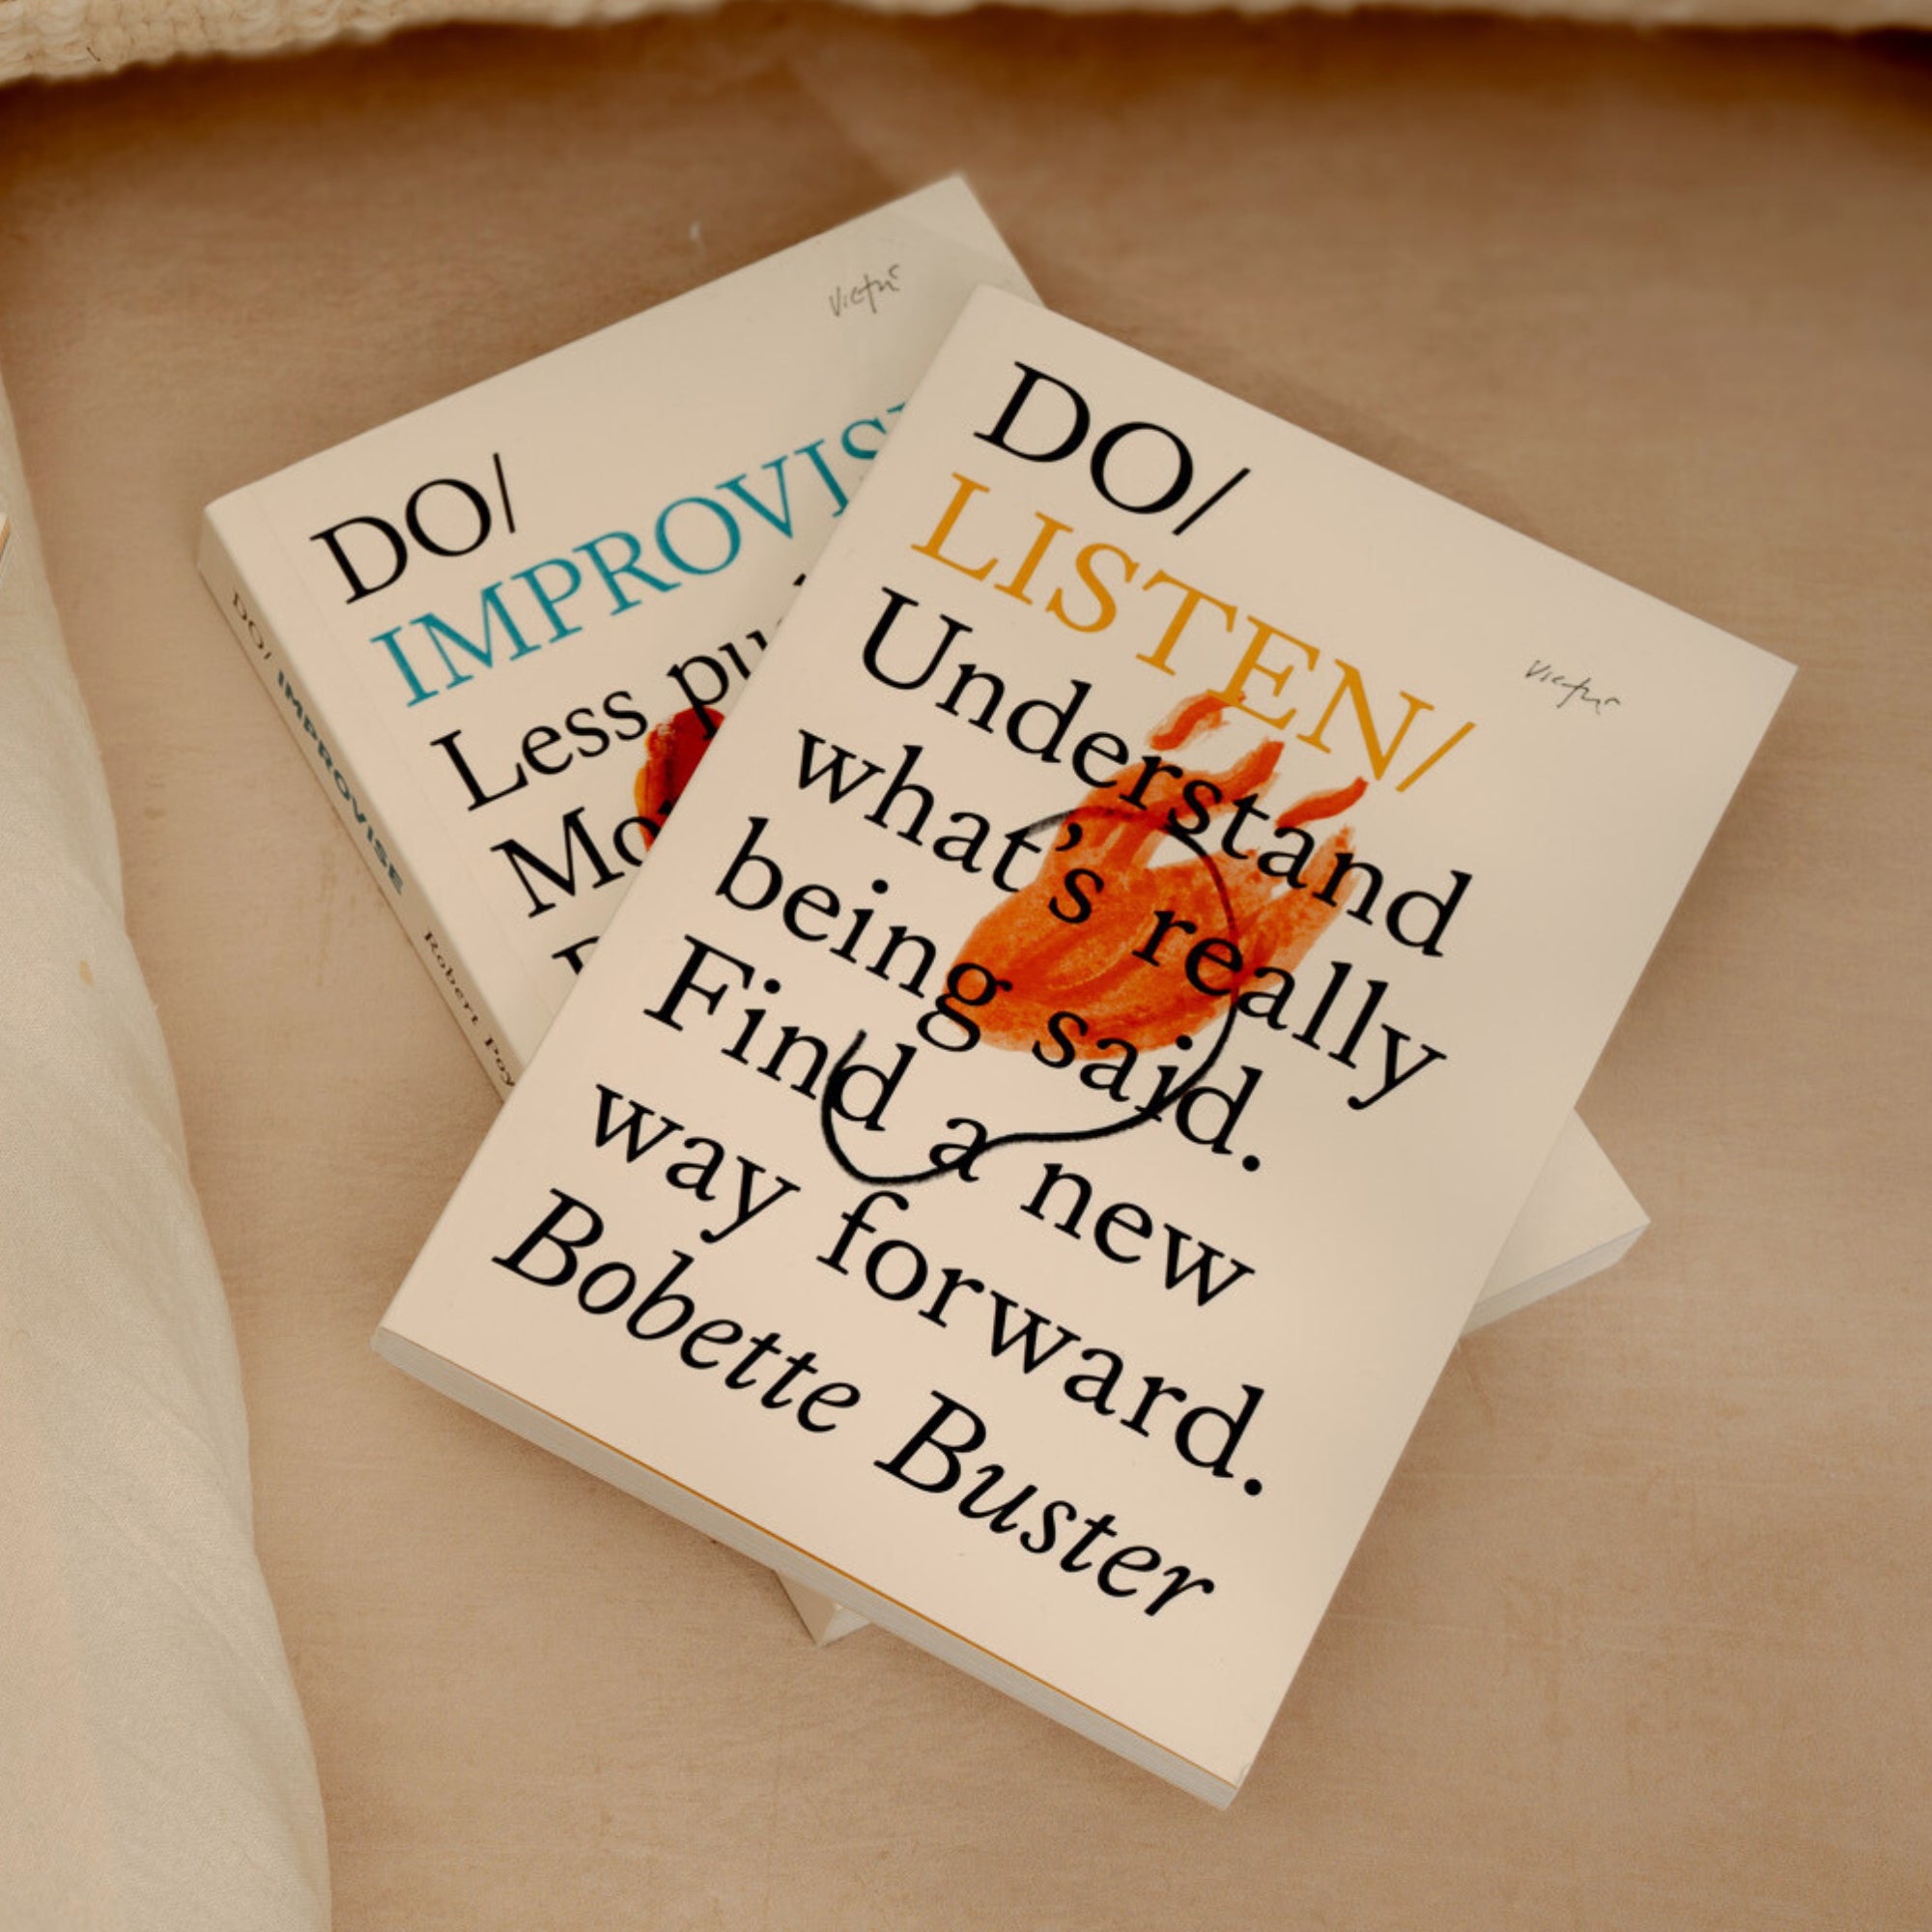 DO/
IMPROVIS
Less pu
Mo
DO/ IMPROVISE Robert Poy
DO/
LISTEN/
Understand
what's really
being said.
Find a new
way forward.
Bobette Buster